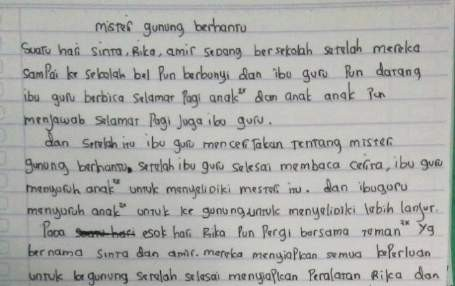 mister gunung berhantu
Suatu hari sinta, Rika, amir sedang bersekolah setelah mereka
sampai ke sekolah bel pun berbunyi dan ibu guru pun datang
ibu guru berbica selamat pagi anak" dan anak anak pun
menjawab selamat pagi juga ibu guru.
dan setelah itu ibu guru mencertakan tentang mister
gunung berhantu, setelah ibu guru selesai membaca cerita, ibu guru
menyuruh anak" untuk menyelidiki mester itu. dan ibuguru
menyuruh anak" untuk ke gunung untuk menyelidiki lebih lanjut.
Pada esok hari Rika pun pergi bersama teman" yg
bernama sinta dan amir. mereka menyiapkan semua keperluan
untuk ke gunung setelah selesai menyiapkan peralatan Rika dan